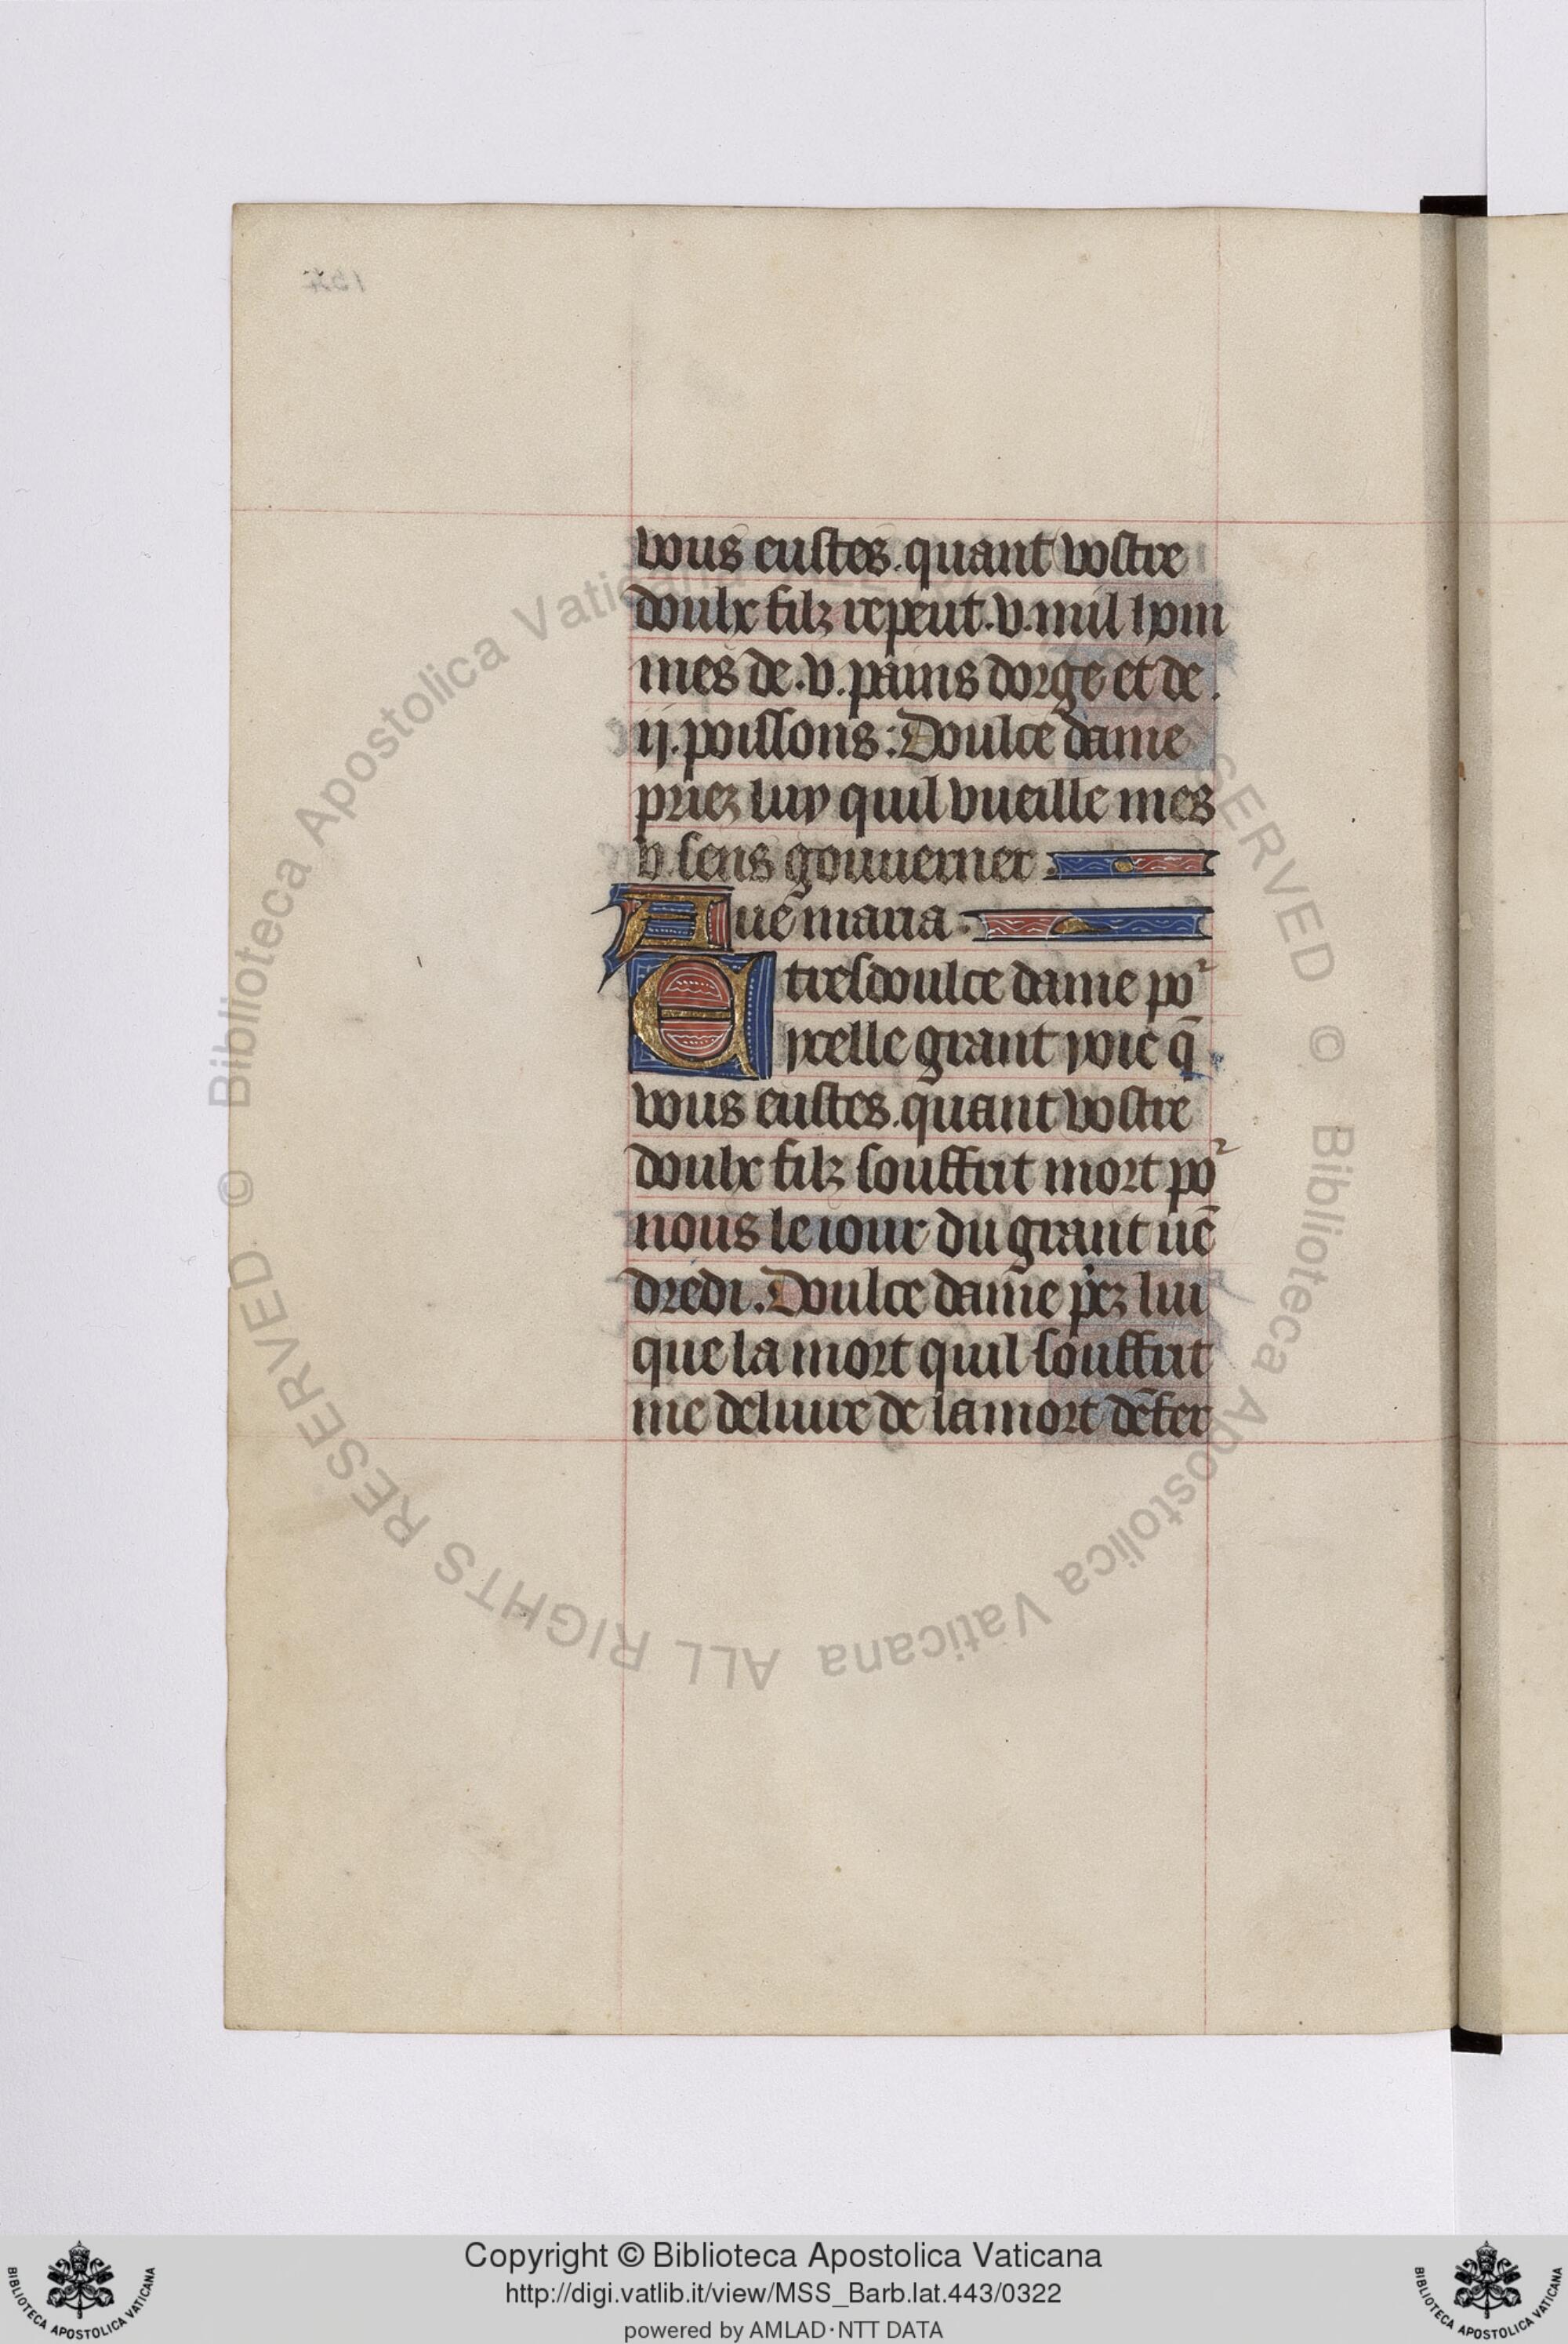 vous eustes. quant vostre
doulx filz repeut .v. mil hom
mes de .v. pains dorge et de .
ij. poissons : Doulce dame
priez luy quil vueille mes
v. sens gouuerner .
Aue maria .
E tresdoulce dame po᷑
ycelle grant ioie q̄
vous eustes. quant vostre
doulx filz souffrit mort po᷑
nous le iour du grant uē
dredi . Doulce dame p̓ez lui
que la mort quil souffrit
me deliure de la mort dēfer
© Biblioteca Apostolica Vaticana ALL RIGHTS RESERVED
Copyright © Biblioteca Apostolica Vaticana
http://digi.vatlib.it/view/MSS_Barb.lat.443/0322
powered by AMLAD·NTT DATA
BIBLIOTECA APOSTOLICA VATICANA
BIBLIOTECA APOSTOLICA VATICANA